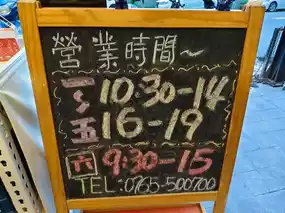 營業時間~
一~五 10:30-14
16-19
六 9:30-15
TEL:0765-500700